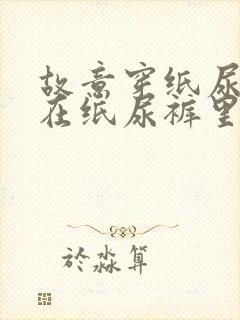 故意穿纸尿
在纸尿裤里
於淼算